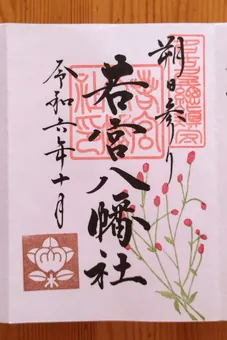 朔日参り
若宮八幡社
令和六年十月